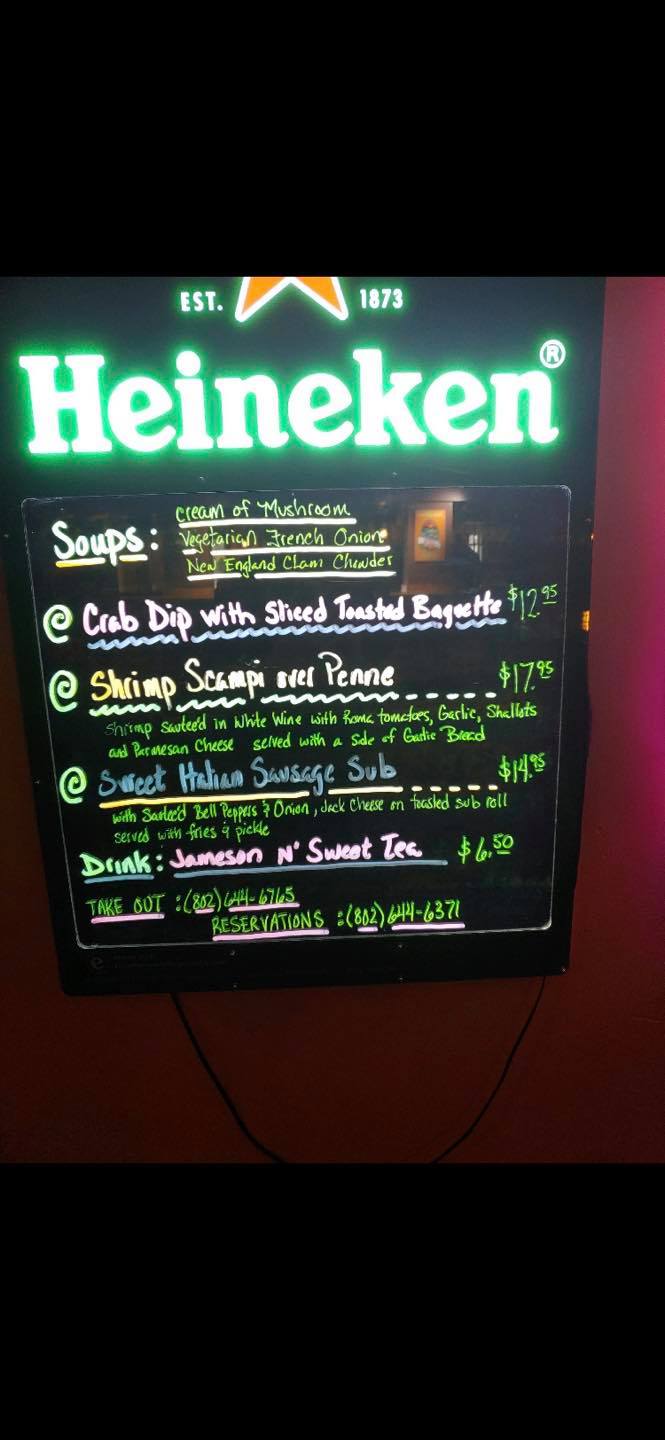 EST. 1873
Heineken®
Soups: cream of Mushroom
Vegetarian French Onion
New England Clam Chowder
@ Crab Dip with Sliced Toasted Baguette $12.95
@ Shrimp Scampi over Penne $17.95
Shrimp sauteé'd in White Wine with Roma tomatoes, Garlic, Shallots
and Parmesan Cheese served with a Side of Garlic Bread
@ Sweet Italian Sausage Sub $14.95
with Sauteé'd Bell Peppers & Onion, Jack Cheese on toasted sub roll
served with fries & pickle
Drink: Jameson N' Sweet Tea $6.50
TAKE OUT : (802) 644-6765
RESERVATIONS : (802) 644-6371